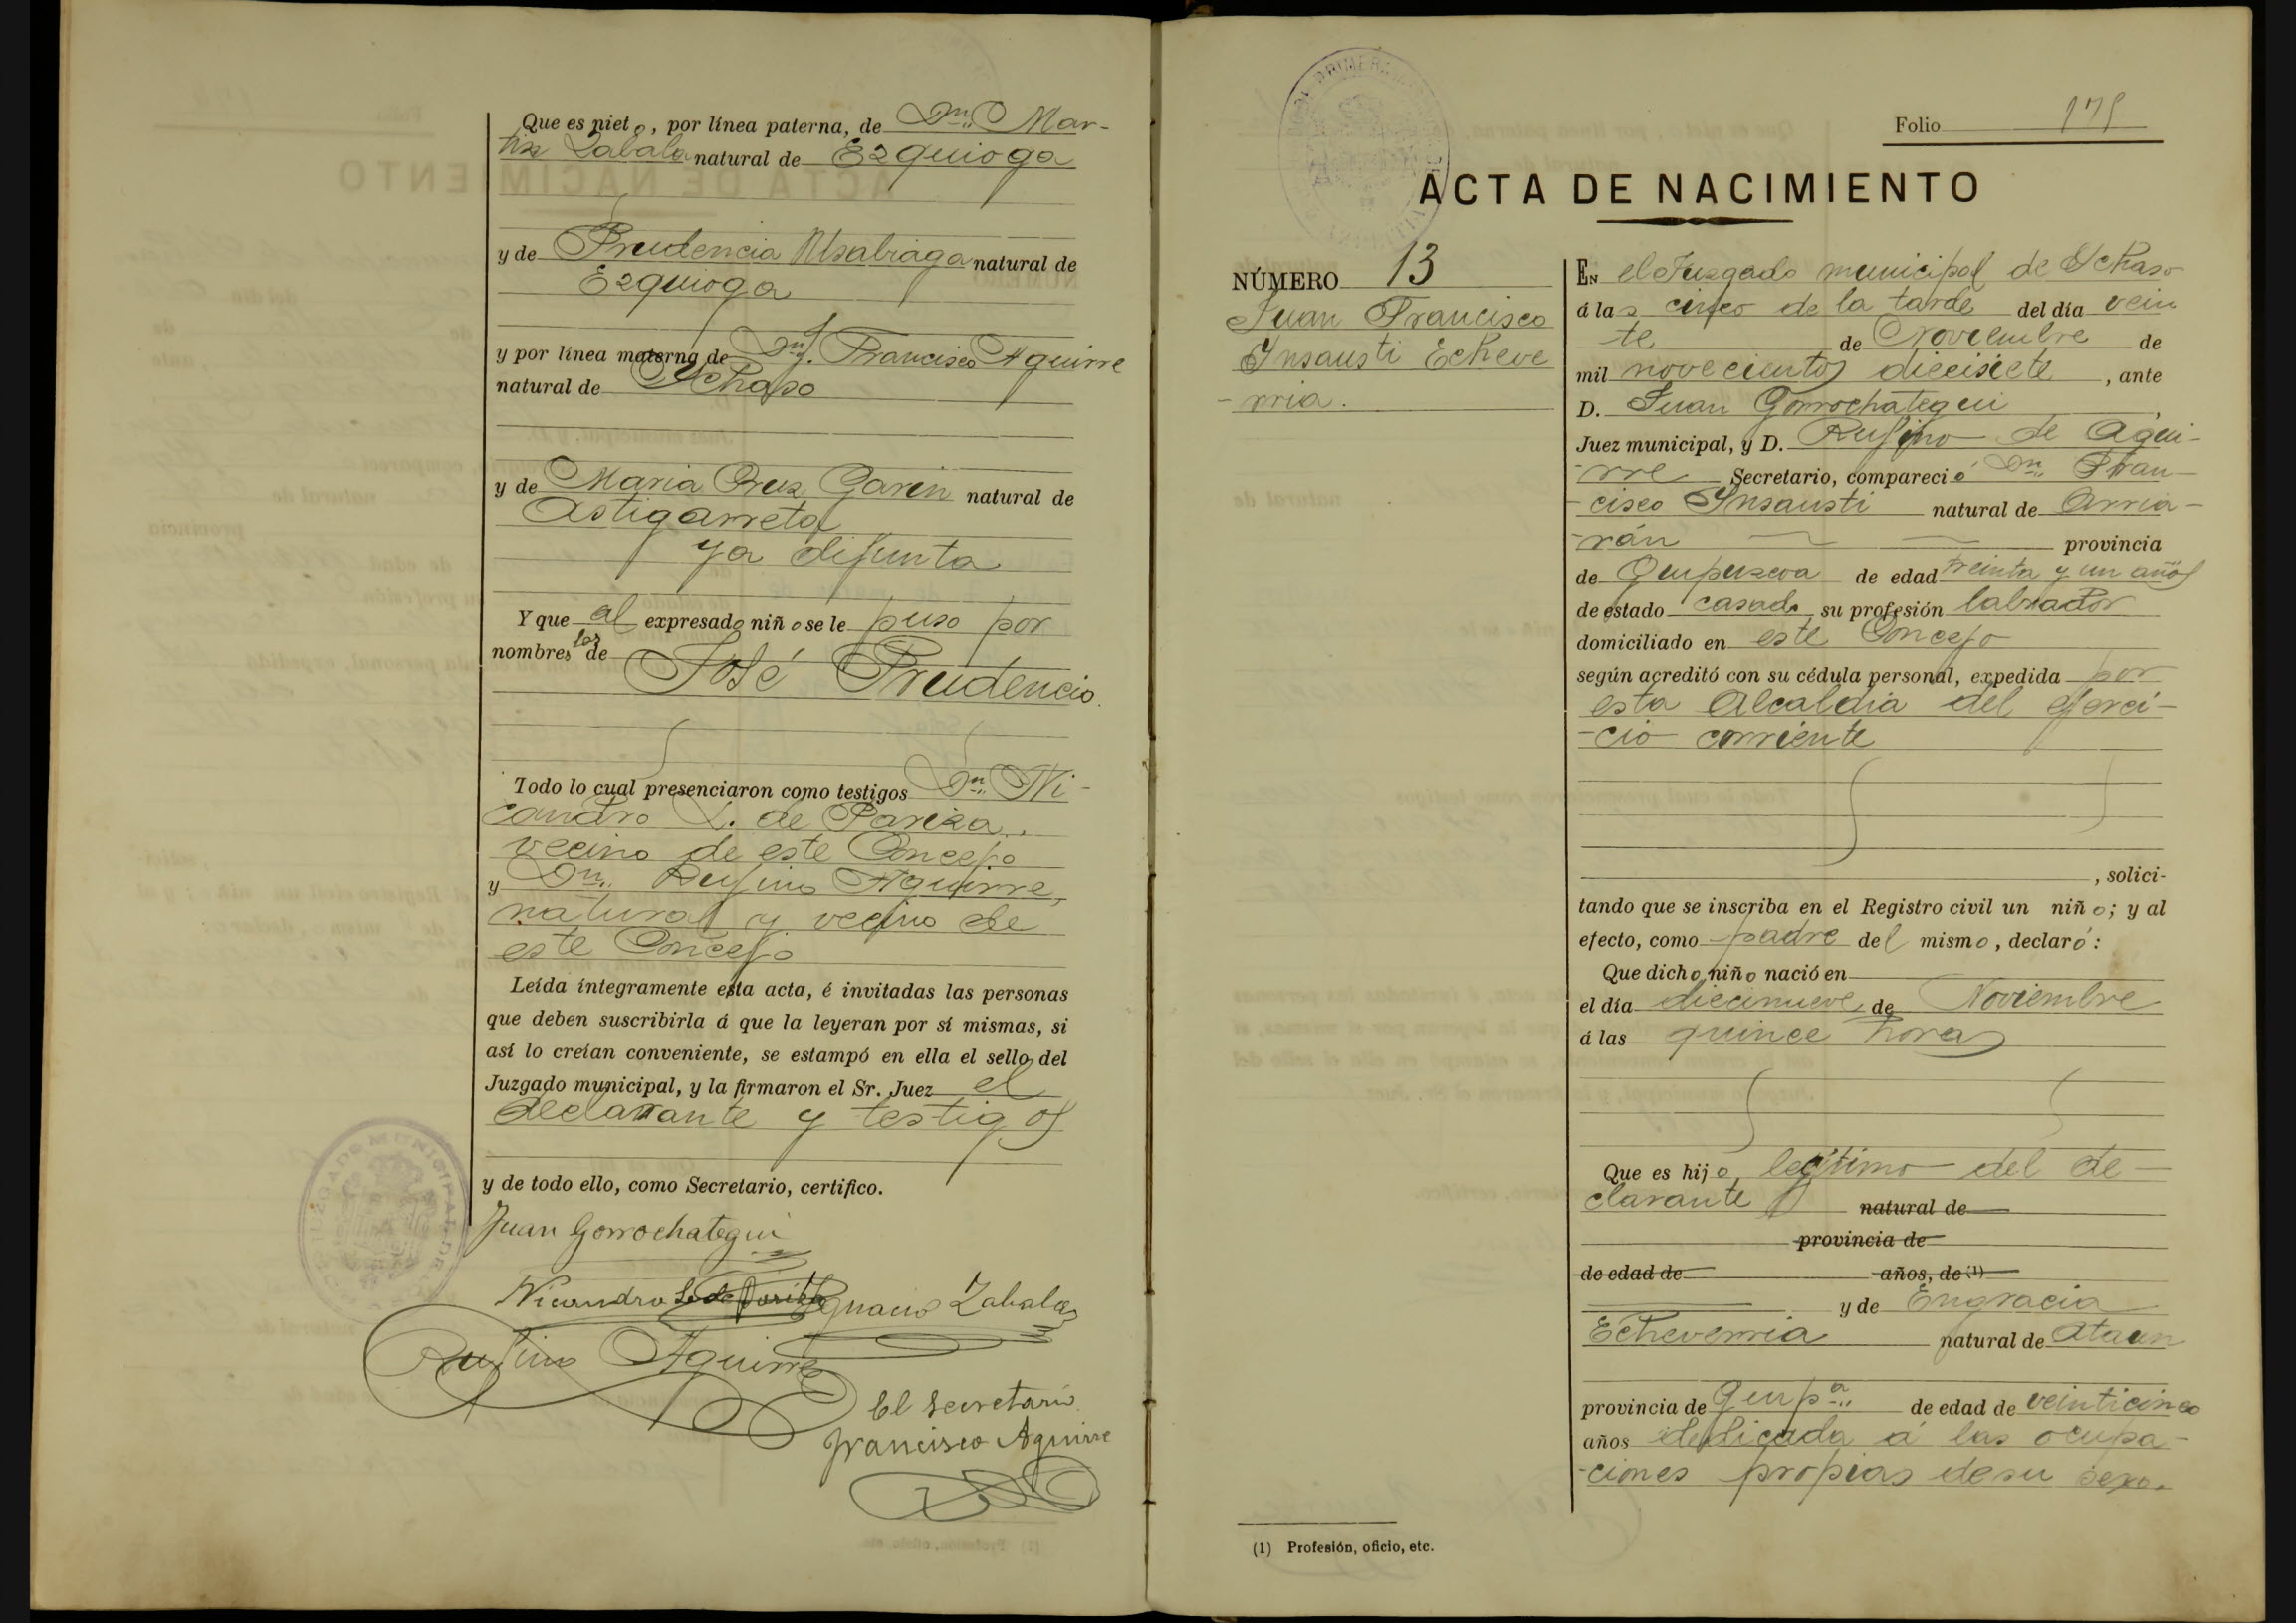 Que es nieto, por línea paterna, de Dn. Mar-
tin Zabala natural de Ezquioga
y de Prudencia Alsabiaga natural de
Ezquioga
y por línea materna de Dn. Francisco Aguirre
natural de Ychaso
y de Maria Cruz Garin natural de
Astigarreta
ya difunta
Y que al expresado niño se le puso por
nombres los de José Prudencio.
Todo lo cual presenciaron como testigos Dn. Ni-
candro L. de Pariza,
vecino de este Concejo
y Dn. Rufino Aguirre,
natural y vecino de
este Concejo
Leída íntegramente esta acta, é invitadas las personas
que deben suscribirla á que la leyeran por sí mismas, si
así lo creían conveniente, se estampó en ella el sello del
Juzgado municipal, y la firmaron el Sr. Juez el
declarante y testigos
y de todo ello, como Secretario, certifico.
JUZGADO MUNICIPAL DE
Juan Gorrochategui
Nicandro L. de Pariza Ignacio Zabala
Rufino Aguirre
El Secretario
Francisco Aguirre
Folio 175
ACTA DE NACIMIENTO
NÚMERO 13
Juan Francisco
Insausti Echeve
-rria.
EN el Juzgado municipal de Ychaso
á las cinco de la tarde del día vein
te de Noviembre de
mil novecientos diecisiete, ante
D. Juan Gorrochategui,
Juez municipal, y D. Rufino de Agui-
-rre Secretario, compareció Dn. Fran-
-cisco Insausti natural de Arria-
-rán provincia
de Guipuzcoa de edad treinta y un años
de estado casado, su profesión labrador
domiciliado en este Concejo
según acreditó con su cédula personal, expedida por
esta Alcaldia del ejerci-
-cio corriente
, solici-
tando que se inscriba en el Registro civil un niño; y al
efecto, como padre del mismo, declaró:
Que dicho niño nació en
el día diecinueve, de Noviembre
á las quince horas
Que es hijo legítimo del de-
clarante natural de
provincia de
de edad de años, de (1)
y de Engracia
Echeverria natural de Ataun
provincia de Guipª de edad de veinticinco
años dedicada á las ocupa-
-ciones propias de su sexo.
(1) Profesión, oficio, etc.